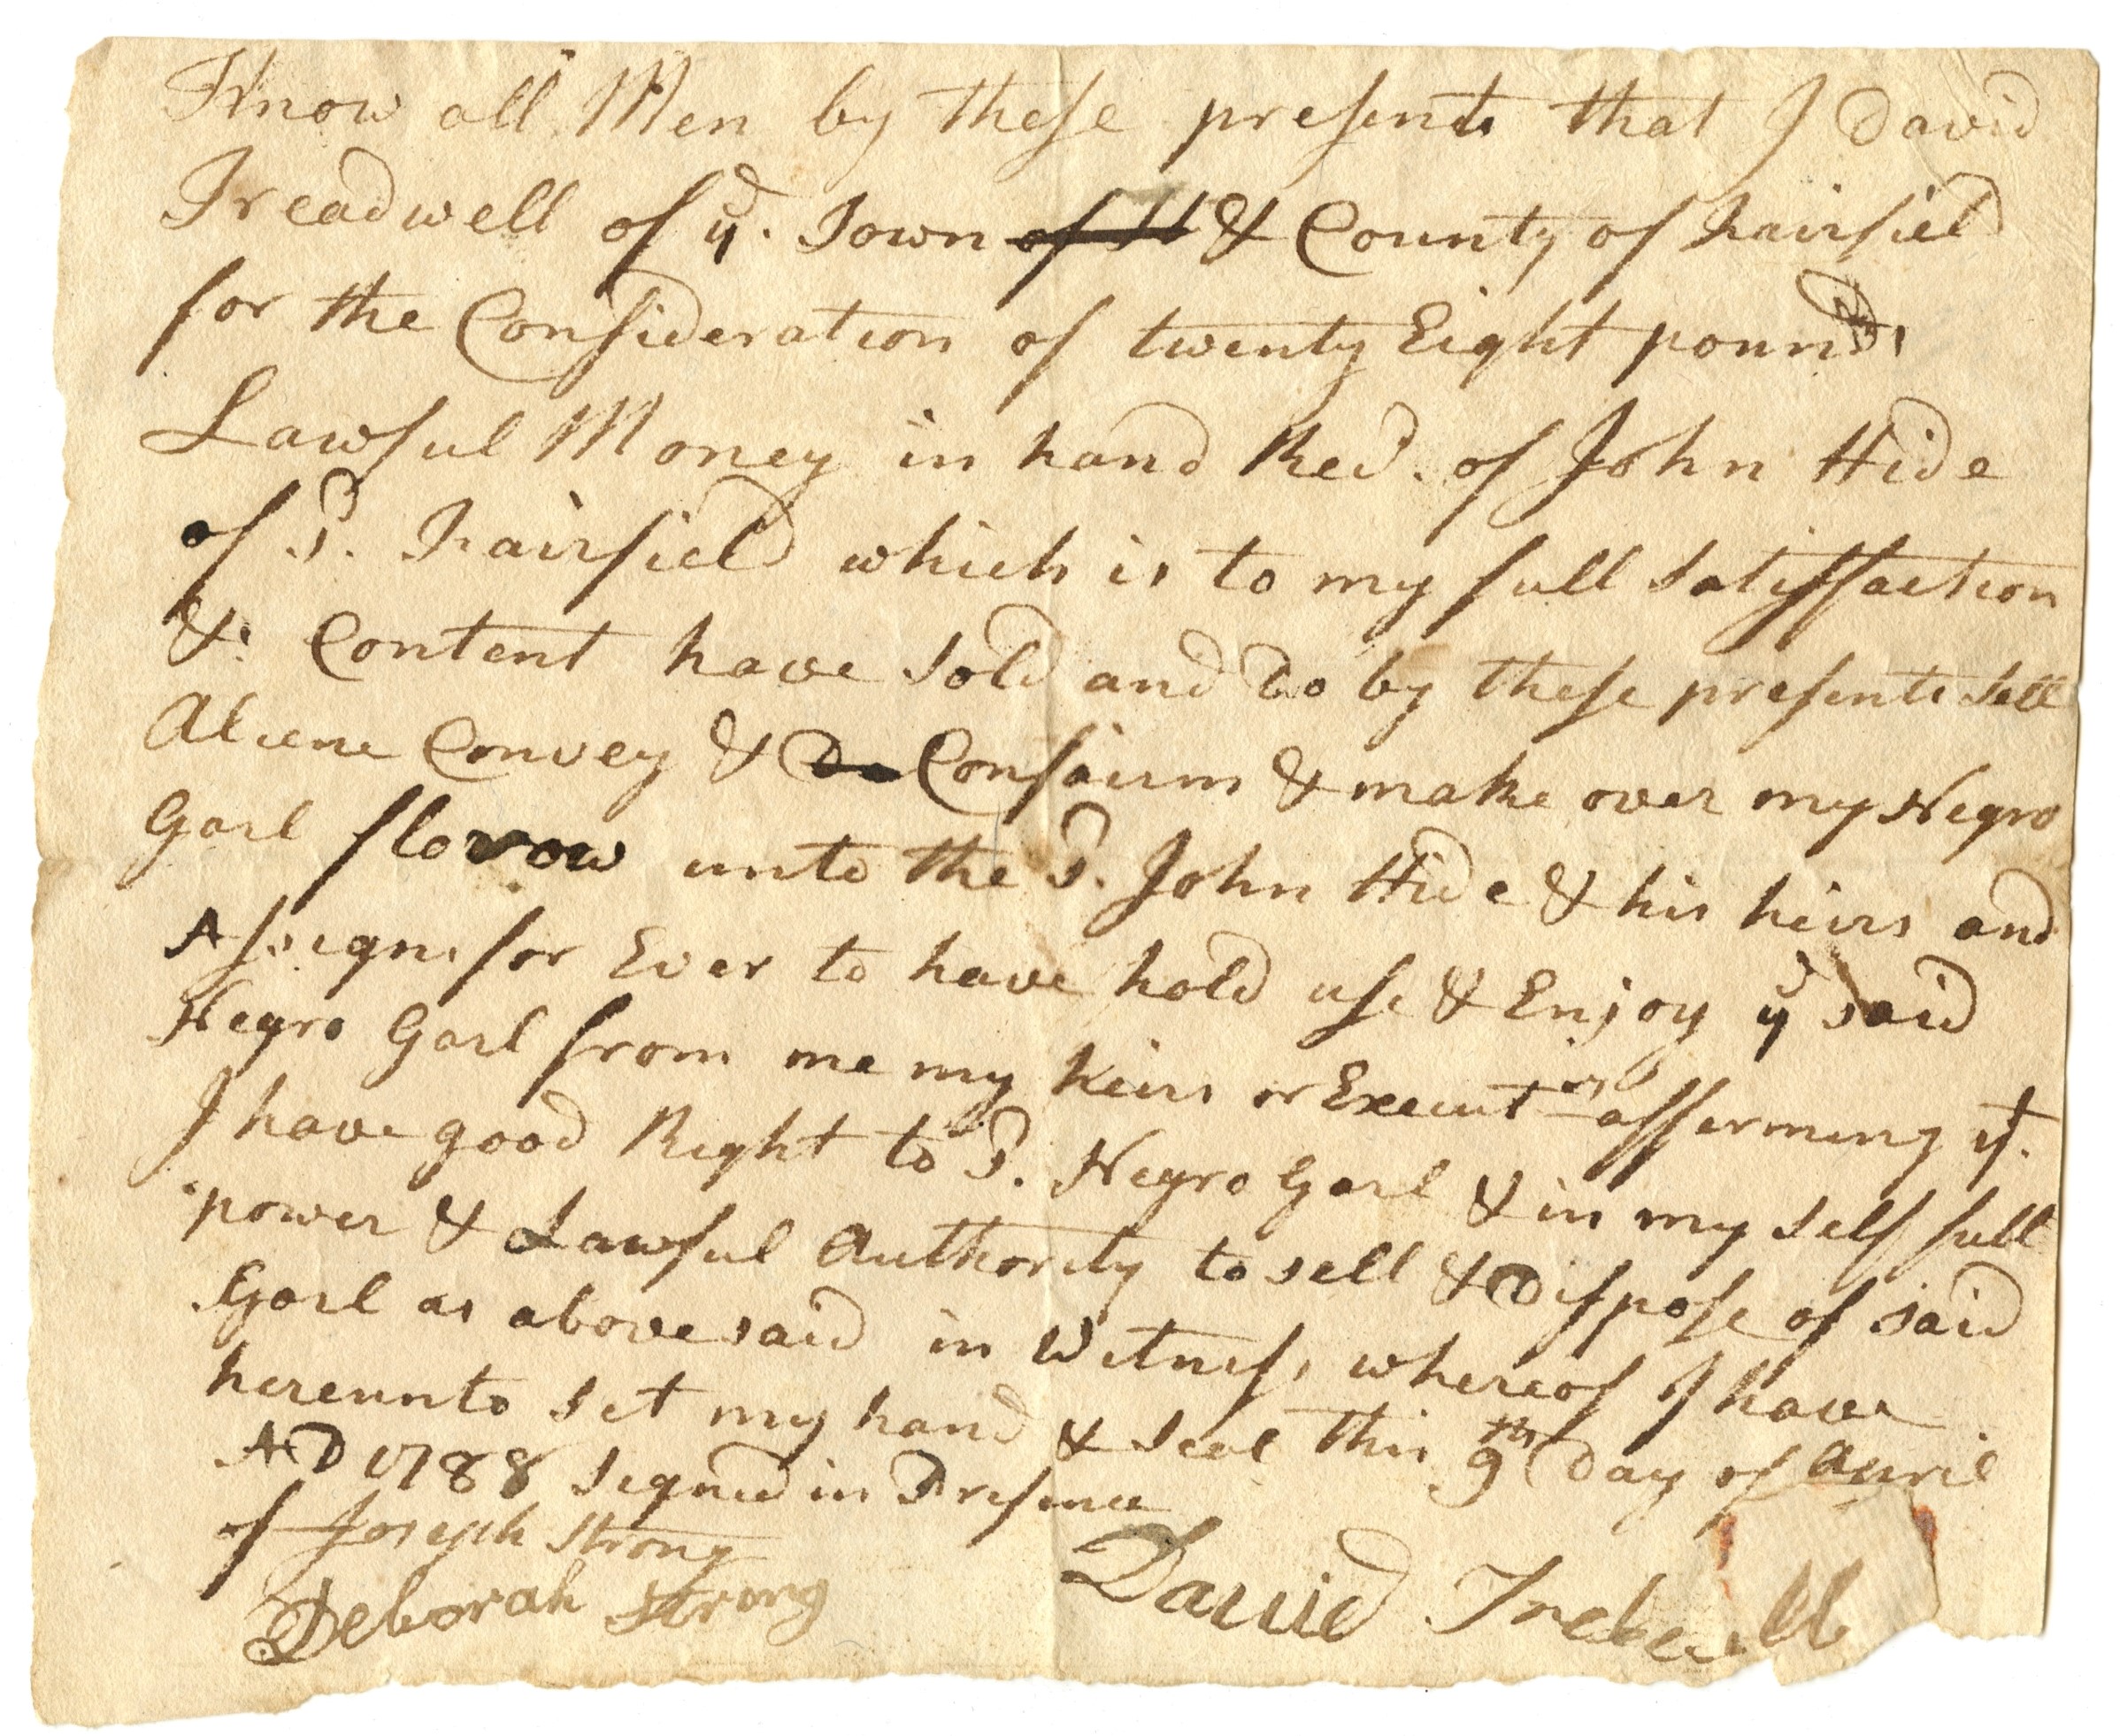 Know all Men by these presents that I David
Treadwell of ye. Town of St & County of Fairfield
for the Consideration of twenty Eight pounds
Lawful Money in hand Recd. of John Hide
of sd. Fairfield which is to my full Satisfaction
& Content have Sold and Do by these presents Sell
Aliene Convey & Do Confairm & make over my Negro
Garl florow unto the sd. John Hide & his heirs and
Assigns for Ever to have hold use & Enjoy ye said
Negro Garl from me my heirs or Executors affirming yt.
I have good Right to sd. Negro Garl & in my self full
power & Lawful Authority to sell & Dispose of said
Garl as above said in Witness whereof I have
hereunto set my hand & Seal this 9th Day of April
AD 1788 Signed in Presence
of Joseph Strong
Deborah Strong
David Tredwell